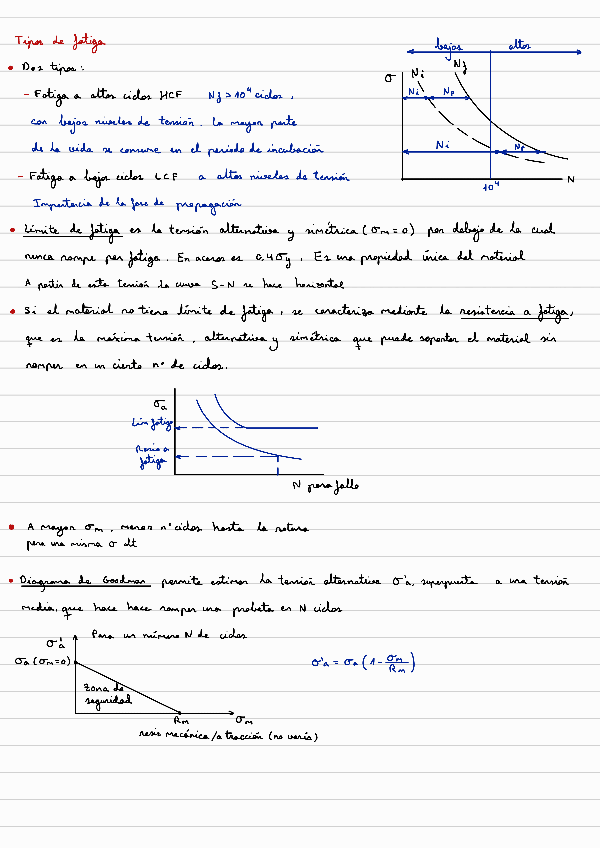 Tipos de fatiga
• Dos tipos:
– Fatiga a altos ciclos HCF Nf > 10⁴ ciclos,
con bajos niveles de tensión. La mayor parte
de la vida se consume en el periodo de incubación
– Fatiga a bajos ciclos LCF a altos niveles de tensión
Importancia de la fase de propagación
bajos altos
σ Ni Nf
Ni Np
Ni Np
10⁴ N
• Límite de fatiga es la tensión alternativa y simétrica (σm = 0) por debajo de la cual
nunca rompe por fatiga. En aceros es 0,4σy. Es una propiedad única del material
A partir de esta tensión la curva S-N se hace horizontal
• Si el material no tiene límite de fatiga, se caracteriza mediante la resistencia a fatiga,
que es la máxima tensión, alternativa y simétrica que puede soportar el material sin
romper en un cierto nº de ciclos.
σa
Lím fatiga
Resis a
fatiga
N para fallo
• A mayor σm, menor nº ciclos hasta la rotura
para una misma σ alt
• Diagrama de Goodman permite estimar la tensión alternativa σ'a, superpuesta a una tensión
media, que hace hace romper una probeta en N ciclos
σ'a Para un número N de ciclos
σa (σm=0)
σ'a = σa (1 - σm/Rm)
zona de
seguridad
Rm σm
resis mecánica /a tracción (no varía)